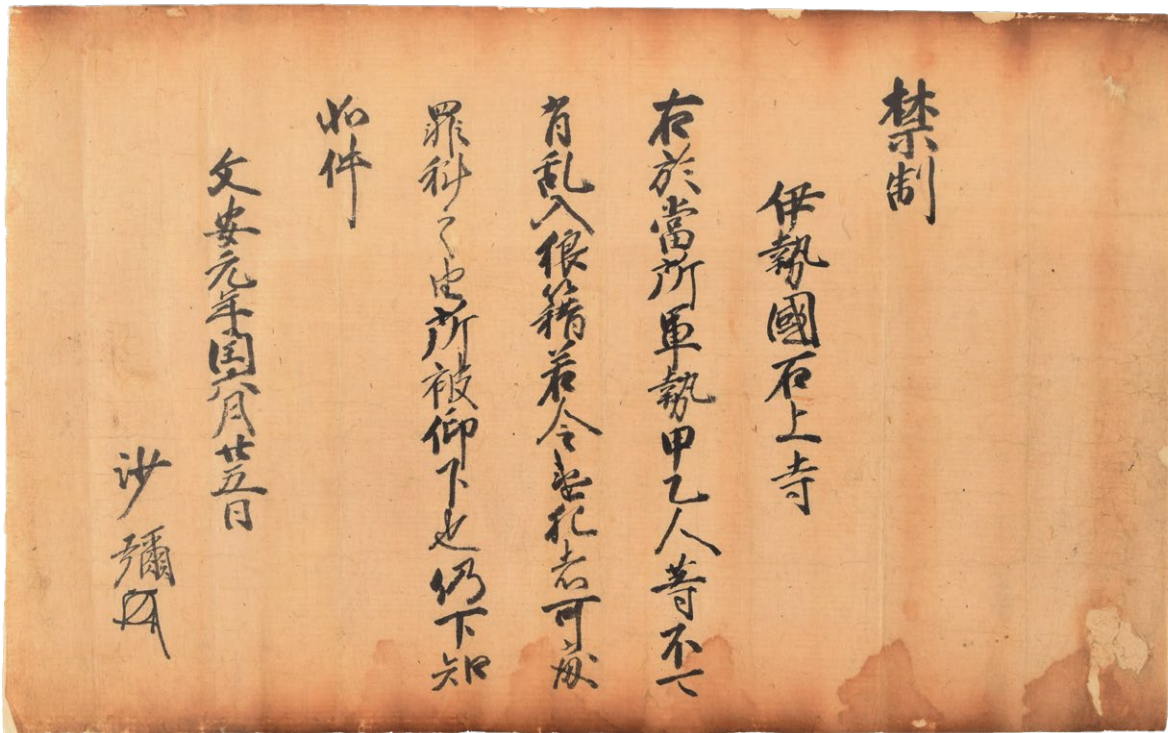 禁制
伊勢國石上寺
右於當所軍勢甲乙人等不可
有乱入狼籍若令違犯者可處
罪科之由所被仰下也仍下知
如件
文安元年閏六月廿五日
沙彌